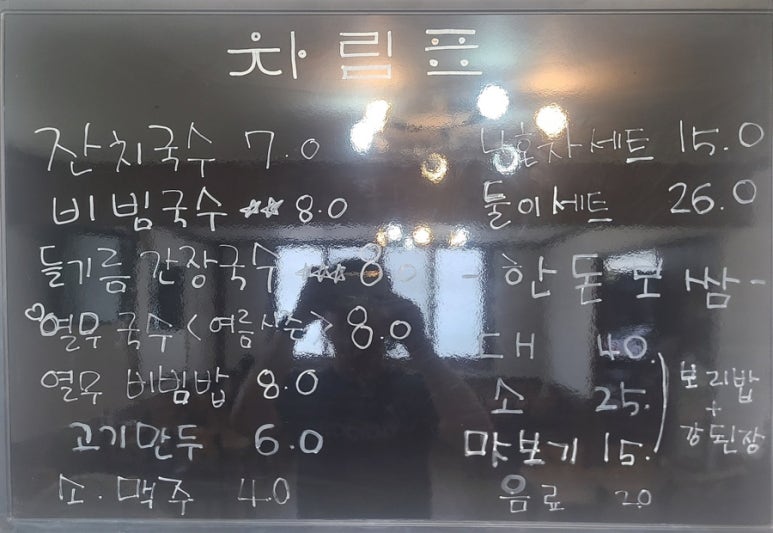 차림표
잔치국수 7.0
비빔국수 ☆☆ 8.0
들기름 간장국수 ☆☆☆ 8.0
♡열무 국수 <여름시즌> 8.0
열무 비빔밥 8.0
고기만두 6.0
소·맥주 4.0
나혼자세트 15.0
둘이세트 26.0
- 한돈 보쌈 -
대 40.
소 25.
맛보기 15.
보리밥
+
강된장
음료 2.0